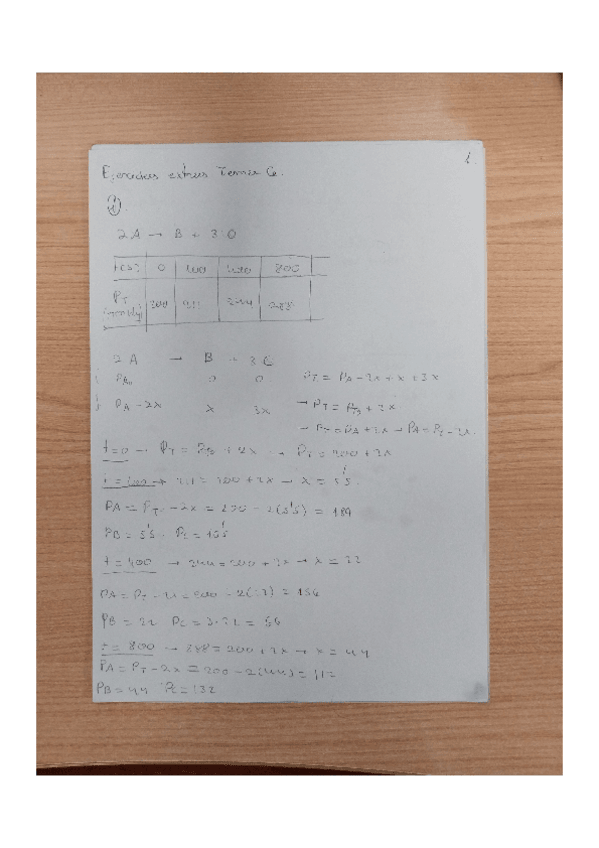 1.
Ejercicios extras Tema 6.
①
2A → B + 3C
t(s) 0 100 400 800
PT (mmHg) 200 211 244 288
2A → B + 3C
PA₀ 0 0 PT = PA - 2x + x + 3x
PA - 2x x 3x → PT = P₀ + 2x
→ PT = PA + 2x → PA = PT - 2x
t=0 → PT = P₀ + 2x PT = 200 + 2x
t = 100 → 211 = 200 + 2x → x = 5'5
PA = PT - 2x = 200 - 2(5'5) = 189
PB = 5'5
t = 400 → 244 = 200 + 2x → x = 22
PA = PT - 2x = 200 - 2(22) = 156
PB = 22 PC = 3·22 = 66
t = 800 → 288 = 200 + 2x → x = 44
PA = PT - 2x = 200 - 2(44) = 112
PB = 44 PC = 132